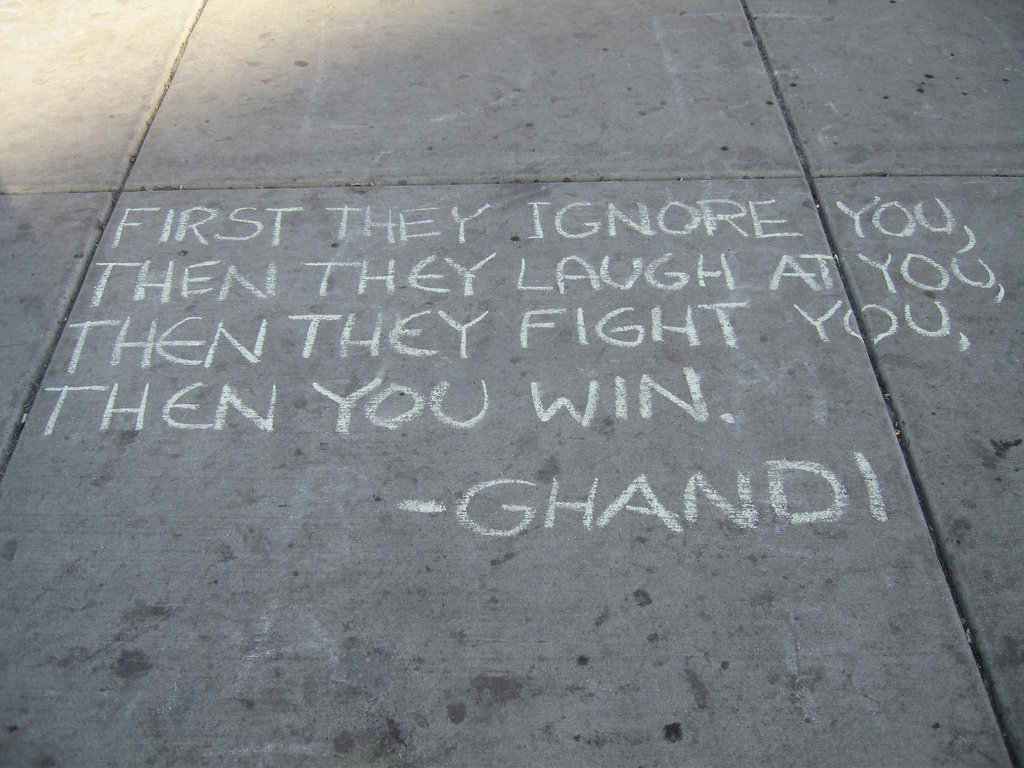 FIRST THEY IGNORE YOU,
THEN THEY LAUGH AT YOU,
THEN THEY FIGHT YOU,
THEN YOU WIN.
-GHANDI